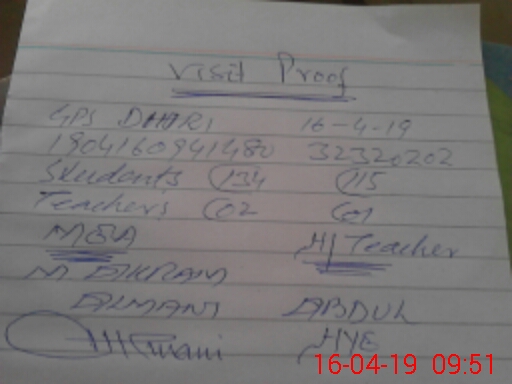 Visit Proof
GPS DHARI 16-4-19
1904160941480 32320202
Students 134 115
Teachers 02 01
MEA H/Teacher
M AKRAM
ALMANI ABDUL
HYE
16-04-19 09:51